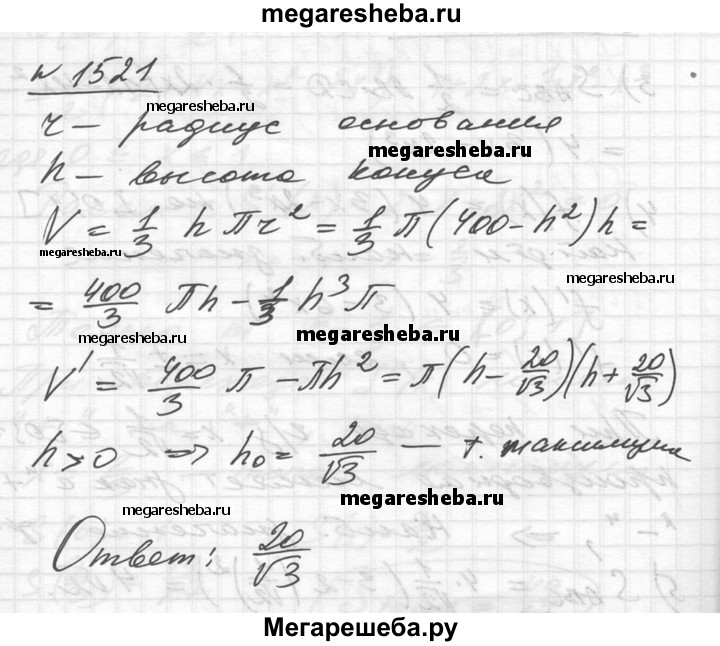 megaresheba.ru
№ 1521
megaresheba.ru
r — радиус основания
megaresheba.ru
h — высота конуса
V = 1/3 h π r² = 1/3 π (400 - h²) h =
megaresheba.ru
megaresheba.ru
= 400/3 πh - 1/3 h³ π
megaresheba.ru
megaresheba.ru
V' = 400/3 π - πh² = π (h - 20/√3)(h + 20/√3)
h > 0 ⇒ h₀ = 20/√3 — т. максимума
megaresheba.ru
megaresheba.ru
Ответ: 20/√3
megaresheba.ru
megaresheba.ru
Мегарешеба.ру